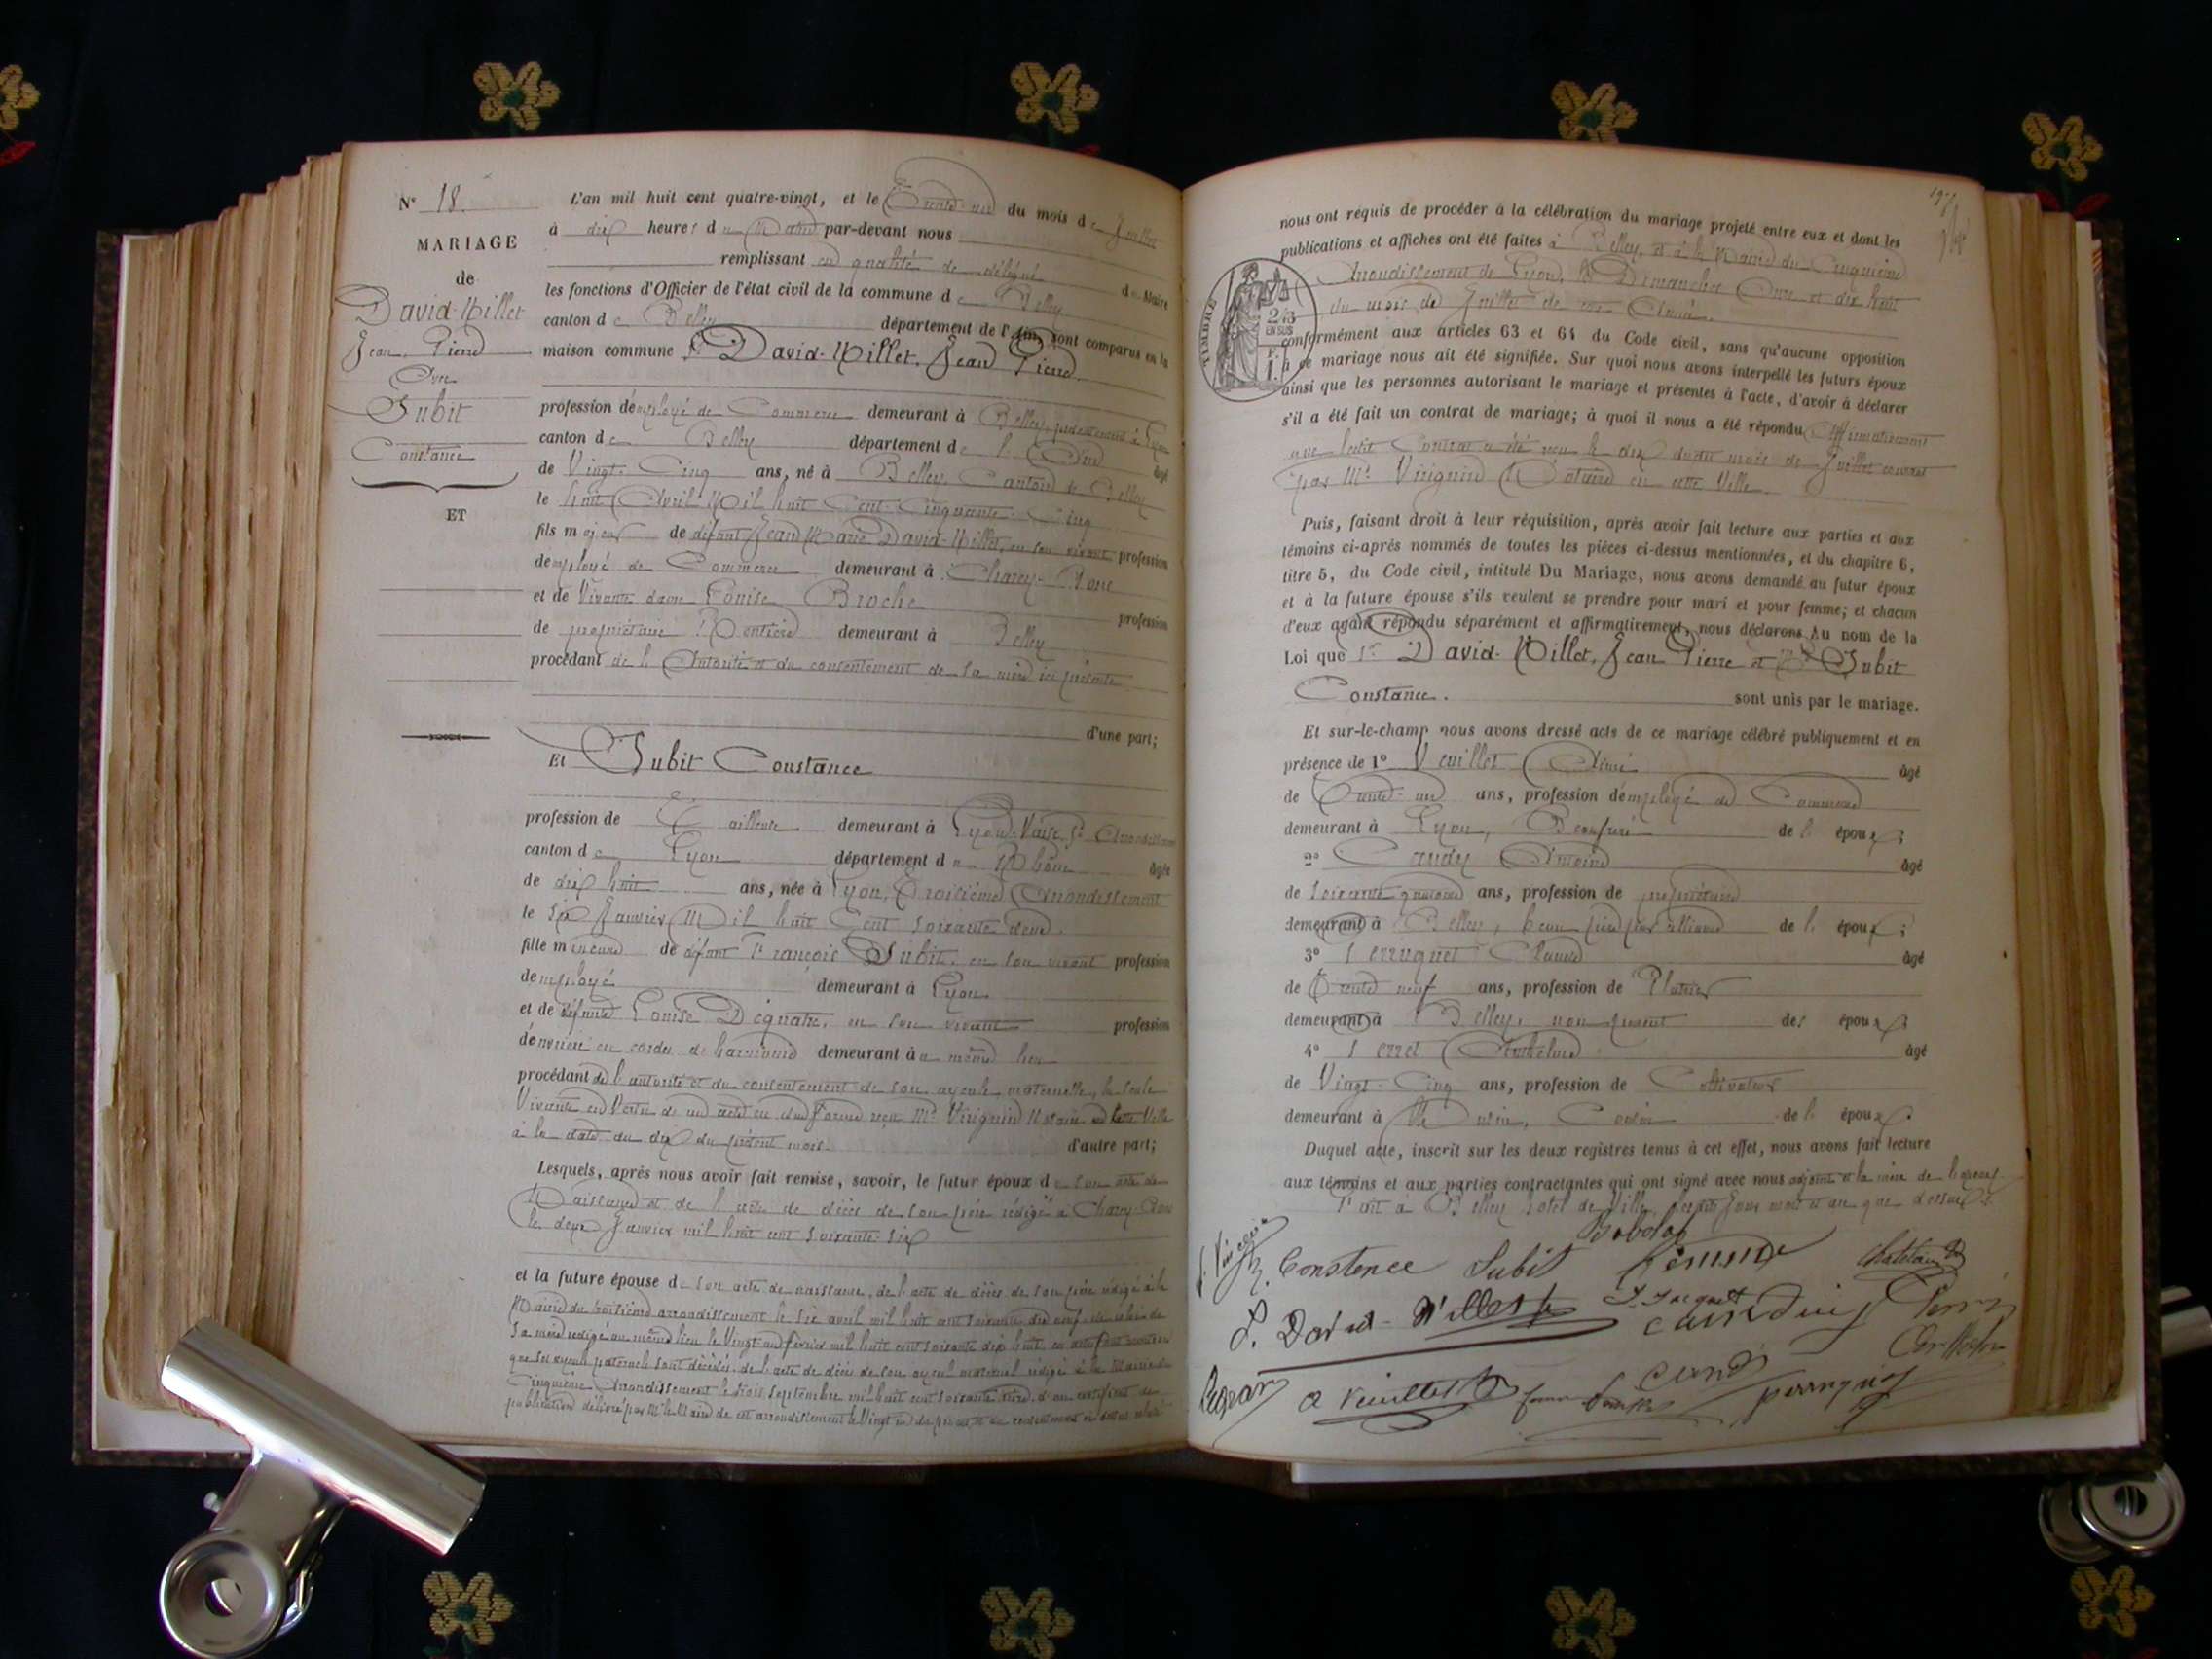 N° 18.
MARIAGE
de
David-Millet
Jean Pierre
Avec
Subit
Constance
ET
L'an mil huit cent quatre-vingt, et le Trente-un du mois de Juillet
à dix heures du Matin par-devant nous
remplissant en qualité de délégué du Maire
les fonctions d'Officier de l'état civil de la commune de Belley
canton de Belley département de l'Ain sont comparus en la
maison commune Sr David-Millet, Jean Pierre
profession d'employé de Commerce demeurant à Belley, précédemment à Lyon
canton de Belley département de l'Ain âgé
de Vingt-Cinq ans, né à Belley, Canton de Belley
le huit Avril Mil huit Cent Cinquante-Cinq
fils majeur de défunt Jean Marie David-Millet, en son vivant profession
d'employé de Commerce demeurant à
et de Vivante dame Louise Broche profession
de propriétaire Rentière demeurant à Belley
procédant de l'Autorité et du consentement de sa mère ici présente
d'une part;
Et Subit Constance
profession de Tailleuse demeurant à Lyon-Vaise, 5e Arrondissement
canton de Lyon département du Rhône âgée
de dix huit ans, née à Lyon, Troisième Arrondissement
le six Janvier Mil huit Cent soixante deux.
fille mineure de défunt François Subit, en son vivant profession
d'employé demeurant à Lyon
et de défunte Louise en son vivant profession
d'ouvrière en cordes de harmonie demeurant au même lieu
procédant de l'autorité et du consentement de son ayeule maternelle, la seule
Vivante en Vertu de un acte en due forme reçu Me Virignin Notaire en cette Ville
à la date du dix du présent mois. d'autre part;
Lesquels, après nous avoir fait remise, savoir, le futur époux de son acte de
Naissance et de l'acte de décès de son père rédigé à
le deux Janvier mil huit cent soixante six
et la future épouse de son acte de naissance, de l'acte de décès de son père rédigé à la
Mairie du troisième arrondissement le six avril mil huit cent soixante dix neuf, de celui de
sa mère rédigé au même lieu le Vingt-un février mil huit cent soixante dix huit, en certifiant
que ses ayeuls paternels sont décédés, de l'acte de décès de son ayeul maternel rédigé à la Mairie du
Cinquième Arrondissement le trois septembre mil huit cent soixante d'un certificat de
publication délivré par Mr le Maire de cet arrondissement le Vingt
nous ont requis de procéder à la célébration du mariage projeté entre eux et dont les
publications et affiches ont été faites à Belley, et à la Mairie du Cinquième
Arrondissement de Lyon, les Dimanches Onze et dix huit
du mois de Juillet de cette Année.
TIMBRE
2/10
EN SUS
conformément aux articles 63 et 64 du Code civil, sans qu'aucune opposition
à ce mariage nous ait été signifiée. Sur quoi nous avons interpellé les futurs époux
ainsi que les personnes autorisant le mariage et présentes à l'acte, d'avoir à déclarer
s'il a été fait un contrat de mariage; à quoi il nous a été répondu Affirmativement
que ledit Contrat a été reçu le dix du mois de Juillet courant
par Me Virignin Notaire en cette Ville.
Puis, faisant droit à leur réquisition, après avoir fait lecture aux parties et aux
témoins ci-après nommés de toutes les pièces ci-dessus mentionnées, et du chapitre 6,
titre 5, du Code civil, intitulé Du Mariage, nous avons demandé au futur époux
et à la future épouse s'ils veulent se prendre pour mari et pour femme; et chacun
d'eux ayant répondu séparément et affirmativement, nous déclarons Au nom de la
Loi que Sr David-Millet, Jean Pierre et Subit
Constance. sont unis par le mariage.
Et sur-le-champ nous avons dressé acte de ce mariage célébré publiquement et en
présence de 1° Veuillet Aimé âgé
de Trente-un ans, profession d'employé de Commerce
demeurant à Lyon, Beaufrère de l'époux;
2° Antoine âgé
de soixante quatorze ans, profession de propriétaire
demeurant à Belley, beau père par alliance de l'époux;
3° Perruquet Claude âgé
de Trente neuf ans, profession de Plâtrier
demeurant à Belley, non parent des époux;
4° Anthelme âgé
de Vingt-Cinq ans, profession de Cultivateur
demeurant à Cousin de l'époux.
Duquel acte, inscrit sur les deux registres tenus à cet effet, nous avons fait lecture
aux témoins et aux parties contractantes qui ont signé avec nous adjoint et la mère de l'époux.
Fait à Belley hotel de Ville, les jour mois et an que dessus.
Constance Subit
Chatelain
J. David-Millet
a Veuillet
perruquet